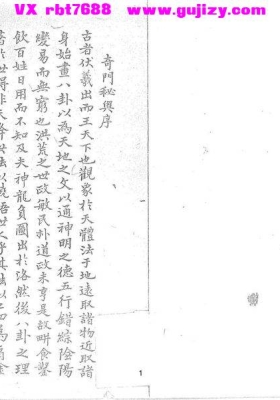 VX rbt7688 www.gujizy.com
奇門秘奧序
古者伏羲出而王天下也觀象於天體法于地遠取諸物近取諸
身始畫八卦以為天地之文以通神明之德五行錯綜陰陽
變易而無窮也洪荒之世政敏民朴道政未亨是故畊食鑿
飲百姓日用而不知及夫神龍負圖出於洛然後八卦之理
1